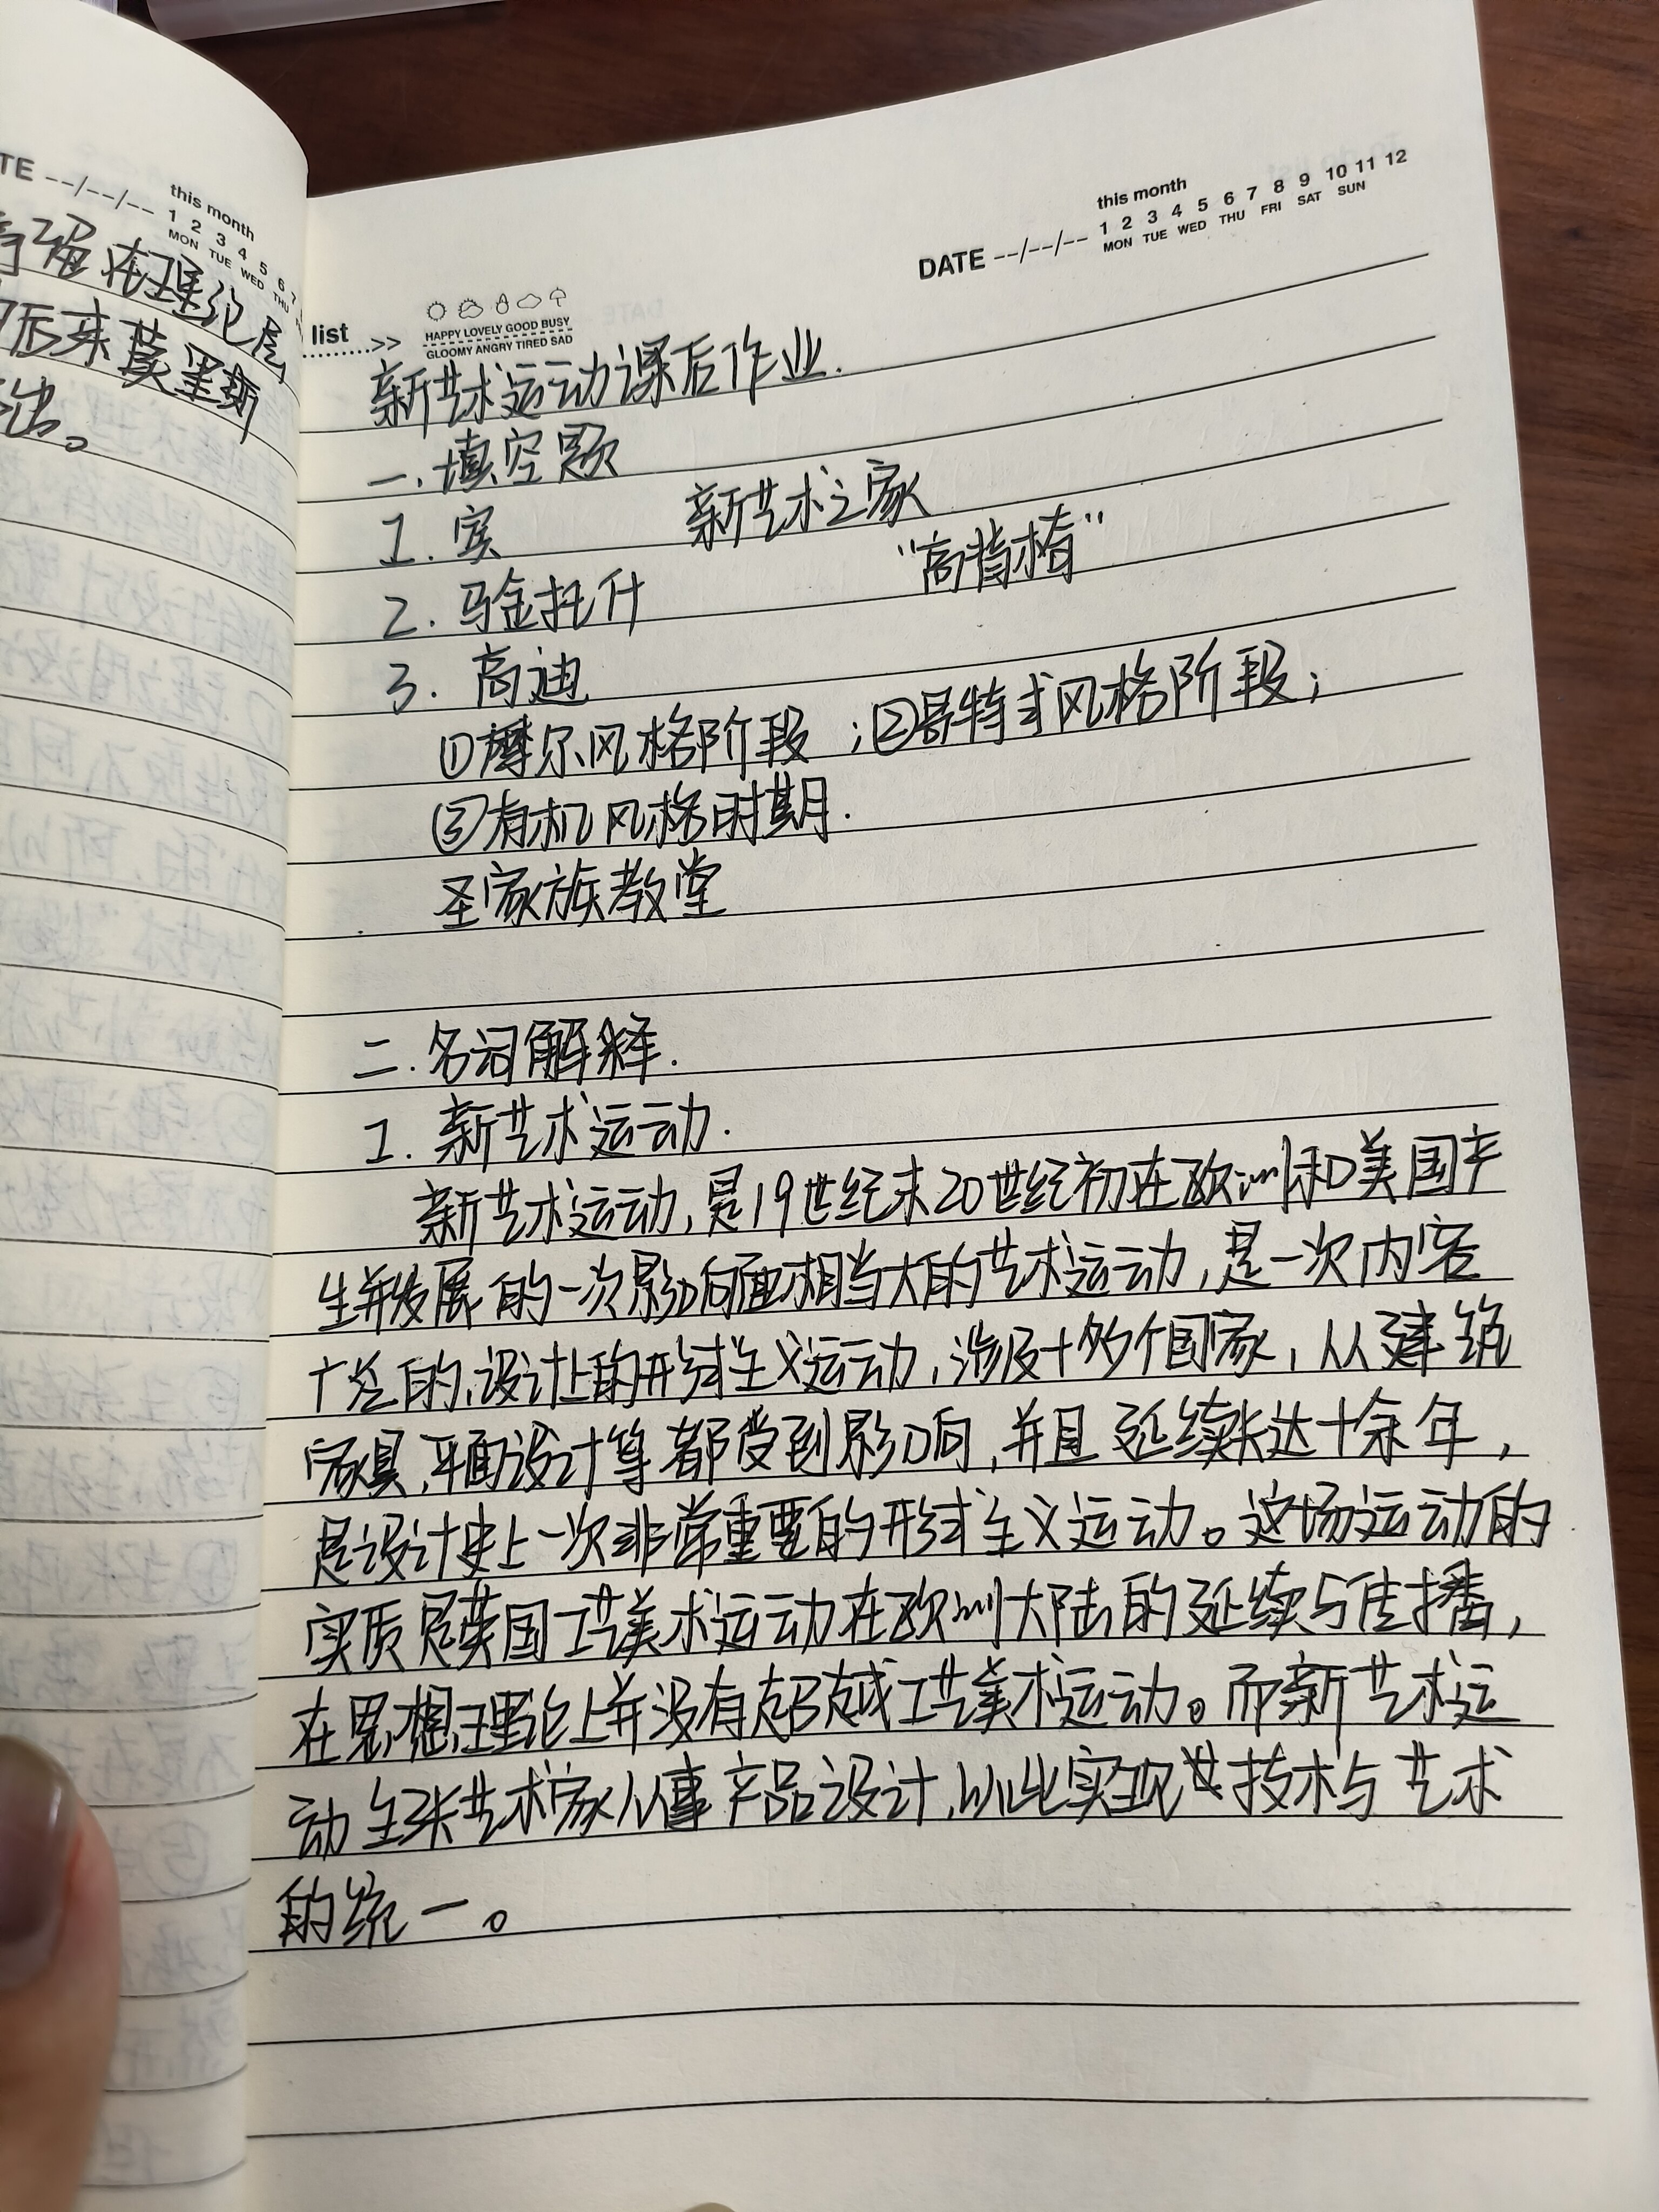 TE --/--/--
this month
1 2 3 4 5 6 7
MON TUE WED THU
在理论层
后来莫里斯
出。
DATE --/--/--
this month
1 2 3 4 5 6 7 8 9 10 11 12
MON TUE WED THU FRI SAT SUN
list >>
HAPPY LOVELY GOOD BUSY
GLOOMY ANGRY TIRED SAD
新艺术运动课后作业.
一.填空题
1. 宾 新艺术之家
2. 马金托什 “高背椅”
3. 高迪
①摩尔风格阶段;②哥特式风格阶段;
③有机风格时期.
圣家族教堂
二.名词解释.
1. 新艺术运动.
新艺术运动,是19世纪末20世纪初在欧洲和美国产
生并发展的一次影响面相当大的艺术运动,是一次内容
广泛的、设计上的形式主义运动,涉及十多个国家,从建筑
家具,平面设计等都受到影响,并且延续长达十余年,
是设计史上一次非常重要的形式主义运动。这场运动的
实质是英国工艺美术运动在欧洲大陆的延续与传播,
在思想理论上并没有超越工艺美术运动。而新艺术运
动主张艺术家从事产品设计,以此实现技术与艺术
的统一。